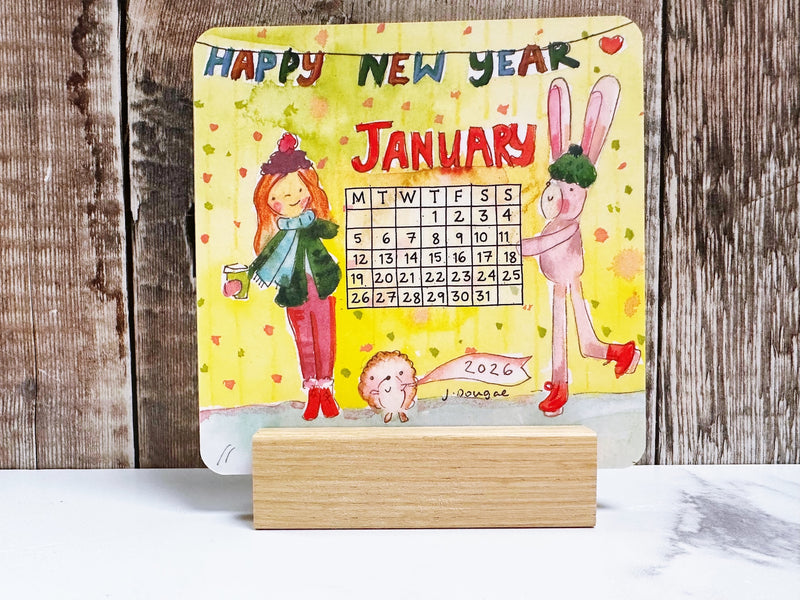 HAPPY NEW YEAR
JANUARY
M T W T F S S
1 2 3 4
5 6 7 8 9 10 11
12 13 14 15 16 17 18
19 20 21 22 23 24 25
26 27 28 29 30 31
2026
J. Dougae